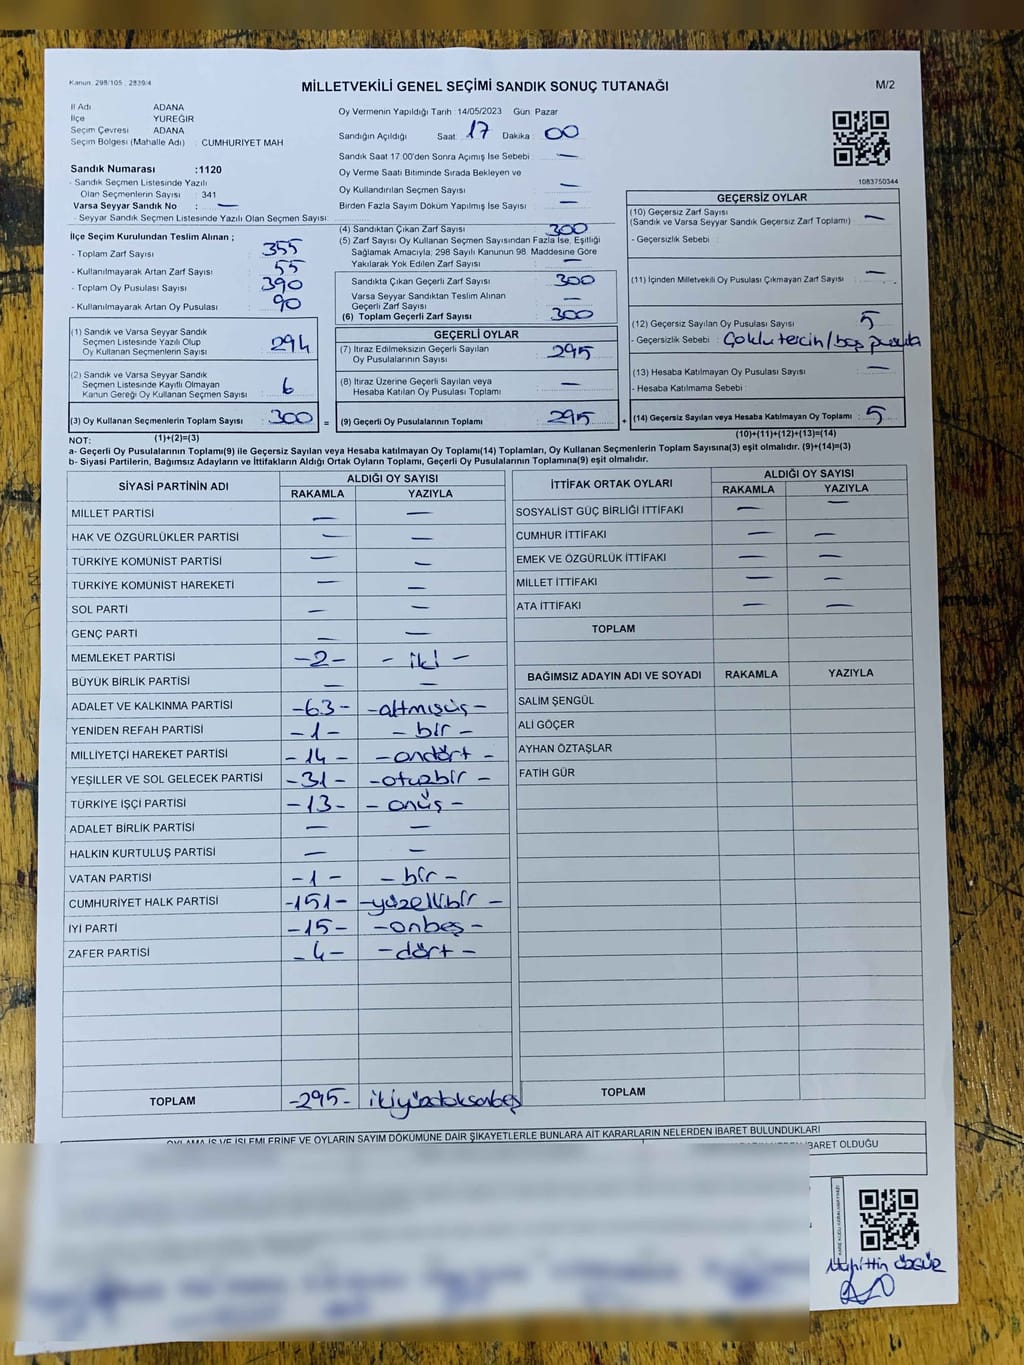 Kanun: 298/105 ; 2839/4
MİLLETVEKİLİ GENEL SEÇİMİ SANDIK SONUÇ TUTANAĞI
M/2
İl Adı ADANA
İlçe YÜREĞİR
Seçim Çevresi ADANA
Seçim Bölgesi (Mahalle Adı) : CUMHURİYET MAH
Sandık Numarası :1120
- Sandık Seçmen Listesinde Yazılı
Olan Seçmenlerin Sayısı : 341
Varsa Seyyar Sandık No : —
- Seyyar Sandık Seçmen Listesinde Yazılı Olan Seçmen Sayısı:
Oy Vermenin Yapıldığı Tarih :14/05/2023 Gün: Pazar
Sandığın Açıldığı Saat: 17 Dakika : 00
Sandık Saat 17:00'den Sonra Açımış İse Sebebi : —
Oy Verme Saati Bitiminde Sırada Bekleyen ve
Oy Kullandırılan Seçmen Sayısı : —
Birden Fazla Sayım Döküm Yapılmış İse Sayısı : —
1083750344
İlçe Seçim Kurulundan Teslim Alınan ;
- Toplam Zarf Sayısı : 355
- Kullanılmayarak Artan Zarf Sayısı : 55
- Toplam Oy Pusulası Sayısı : 390
- Kullanılmayarak Artan Oy Pusulası : 90
(1) Sandık ve Varsa Seyyar Sandık
Seçmen Listesinde Yazılı Olup
Oy Kullanan Seçmenlerin Sayısı : 294
(2) Sandık ve Varsa Seyyar Sandık
Seçmen Listesinde Kayıtlı Olmayan
Kanun Gereği Oy Kullanan Seçmen Sayısı : 6
(3) Oy Kullanan Seçmenlerin Toplam Sayısı : 300 =
(1)+(2)=(3)
(4) Sandıktan Çıkan Zarf Sayısı : 300
(5) Zarf Sayısı Oy Kullanan Seçmen Sayısından Fazla İse, Eşitliği
Sağlamak Amacıyla; 298 Sayılı Kanunun 98. Maddesine Göre
Yakılarak Yok Edilen Zarf Sayısı : —
Sandıkta Çıkan Geçerli Zarf Sayısı : 300
Varsa Seyyar Sandıktan Teslim Alınan
Geçerli Zarf Sayısı : —
(6) Toplam Geçerli Zarf Sayısı : 300
GEÇERLİ OYLAR
(7) İtiraz Edilmeksizin Geçerli Sayılan
Oy Pusulalarının Sayısı : 295
(8) İtiraz Üzerine Geçerli Sayılan veya
Hesaba Katılan Oy Pusulası Toplamı : —
(9) Geçerli Oy Pusulalarının Toplamı : 295 +
GEÇERSİZ OYLAR
(10) Geçersiz Zarf Sayısı
(Sandık ve Varsa Seyyar Sandık Geçersiz Zarf Toplamı) : —
- Geçersizlik Sebebi :
(11) İçinden Milletvekili Oy Pusulası Çıkmayan Zarf Sayısı : —
(12) Geçersiz Sayılan Oy Pusulası Sayısı : 5
- Geçersizlik Sebebi : Çoklu tercih/boş pusula
(13) Hesaba Katılmayan Oy Pusulası Sayısı : —
- Hesaba Katılmama Sebebi :
(14) Geçersiz Sayılan veya Hesaba Katılmayan Oy Toplamı : 5
(10)+(11)+(12)+(13)=(14)
NOT:
a- Geçerli Oy Pusulalarının Toplamı(9) ile Geçersiz Sayılan veya Hesaba katılmayan Oy Toplamı(14) Toplamları, Oy Kullanan Seçmenlerin Toplam Sayısına(3) eşit olmalıdır. (9)+(14)=(3)
b- Siyasi Partilerin, Bağımsız Adayların ve İttifakların Aldığı Ortak Oyların Toplamı, Geçerli Oy Pusulalarının Toplamına(9) eşit olmalıdır.
SİYASİ PARTİNİN ADI ALDIĞI OY SAYISI
RAKAMLA YAZIYLA
MİLLET PARTİSİ — —
HAK VE ÖZGÜRLÜKLER PARTİSİ — —
TÜRKİYE KOMÜNİST PARTİSİ — —
TÜRKİYE KOMÜNİST HAREKETİ — —
SOL PARTİ — —
GENÇ PARTİ — —
MEMLEKET PARTİSİ -2- - iki -
BÜYÜK BİRLİK PARTİSİ — —
ADALET VE KALKINMA PARTİSİ -63- -altmışüç-
YENİDEN REFAH PARTİSİ -1- - bir -
MİLLİYETÇİ HAREKET PARTİSİ -14- -ondört -
YEŞİLLER VE SOL GELECEK PARTİSİ -31- -otuzbir -
TÜRKİYE İŞÇİ PARTİSİ -13- - onüş -
ADALET BİRLİK PARTİSİ — —
HALKIN KURTULUŞ PARTİSİ — —
VATAN PARTİSİ -1- - bir -
CUMHURİYET HALK PARTİSİ -151- -yüzellibir -
İYİ PARTİ -15- -onbeş -
ZAFER PARTİSİ -4- -dört -
TOPLAM -295- ikiyüzdoksanbeş
İTTİFAK ORTAK OYLARI ALDIĞI OY SAYISI
RAKAMLA YAZIYLA
SOSYALİST GÜÇ BİRLİĞİ İTTİFAKI — —
CUMHUR İTTİFAKI — —
EMEK VE ÖZGÜRLÜK İTTİFAKI — —
MİLLET İTTİFAKI — —
ATA İTTİFAKI — —
TOPLAM
BAĞIMSIZ ADAYIN ADI VE SOYADI RAKAMLA YAZIYLA
SALİM ŞENGÜL
ALİ GÖÇER
AYHAN ÖZTAŞLAR
FATİH GÜR
TOPLAM
OYLAMA İŞ VE İŞLEMLERİNE VE OYLARIN SAYIM DÖKÜMÜNE DAİR ŞİKAYETLERLE BUNLARA AİT KARARLARIN NELERDEN İBARET BULUNDUKLARI
İBARET OLDUĞU
Muhittin ÖZGÜR